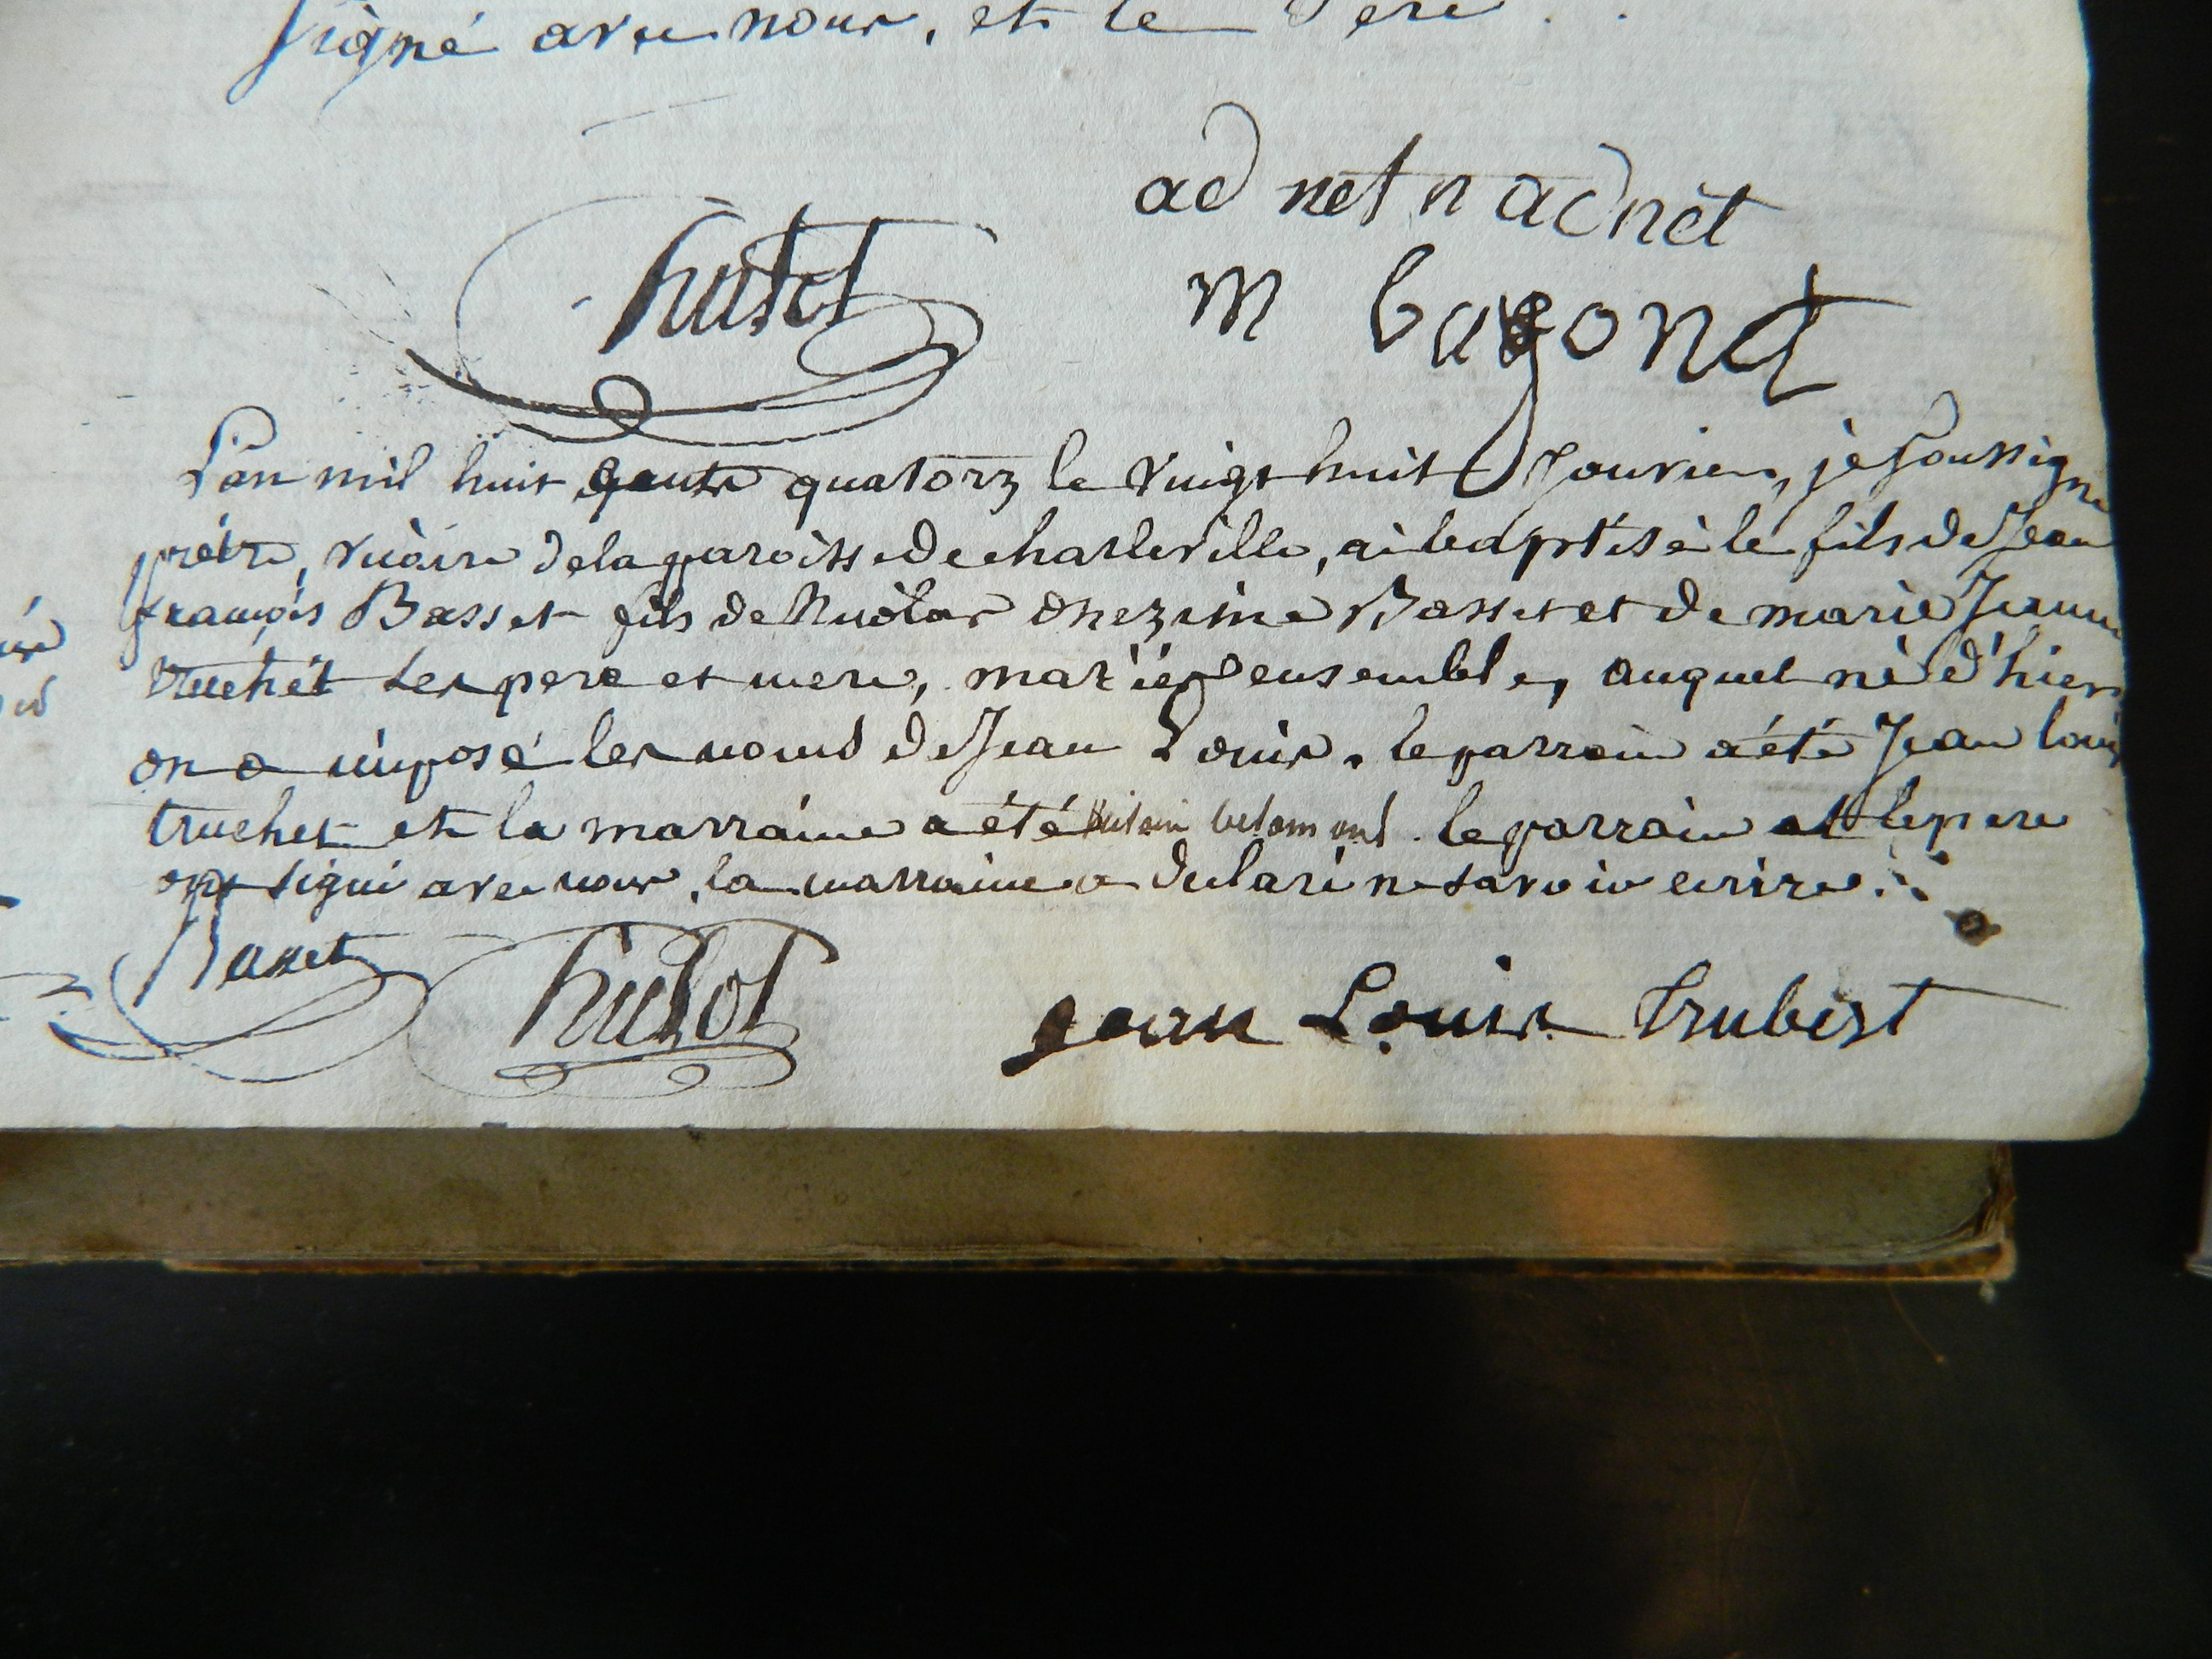 signé avec nous, et le Pere . .
ad net n adnet
hulot
m bagond
L'an mil huit quatorz le vingt huit Janvier, je soussigné
prêtre, vicaire de la paroisse de charleville, ai baptisé le fils de Jean
françois Basset fils de Nicolas onezime Basset et de marie Jeanne
truchet ses pere et mere, mariés ensemble, auquel né d'hier
on a imposé les noms de Jean Louis. le parrain a été Jean louis
truchet et la marraine a été le parrain et le pere
ont signé avec nous, la marraine a declaré ne savoir ecrire.
Basset hulot Jean Louis trubert